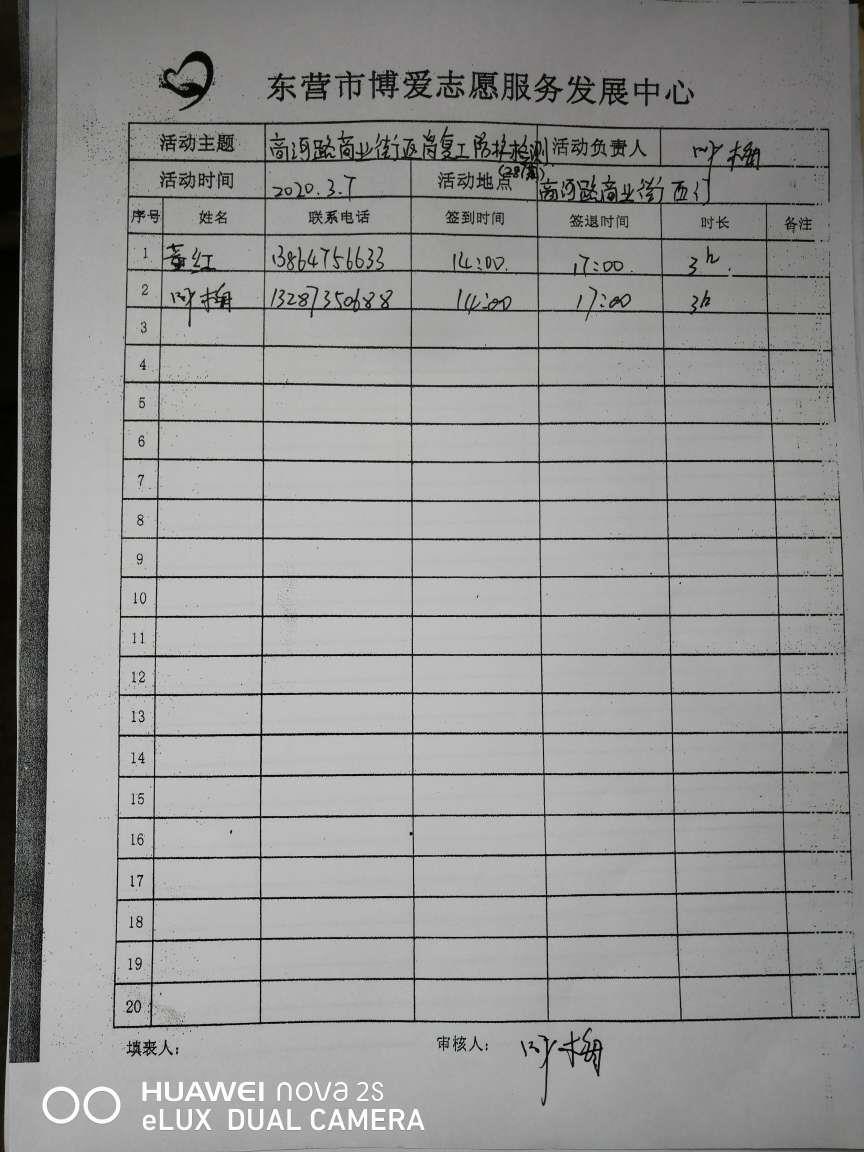 东营市博爱志愿服务发展中心
活动主题 商河路商业街返岗复工防护检测 活动负责人 叶梅
活动时间 2020.3.7 活动地点 商河路商业街西门
序号 姓名 联系电话 签到时间 签退时间 时长 备注
1 黄红 13864756633 14:00 17:00 3h
2 叶梅 13287350688 14:00 17:00 3h
3
4
5
6
7
8
9
10
11
12
13
14
15
16
17
18
19
20
填表人： 审核人： 叶梅
HUAWEI nova 2S
eLUX DUAL CAMERA